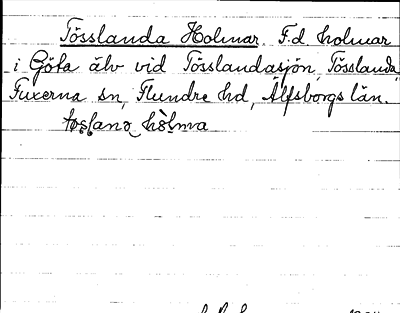 Tösslanda Holmar F.d. holmar
i Göta älv vid Tösslandasjön, Tösslanda,
Fuxerna sn, Flundre hd, Älfsborgs län.